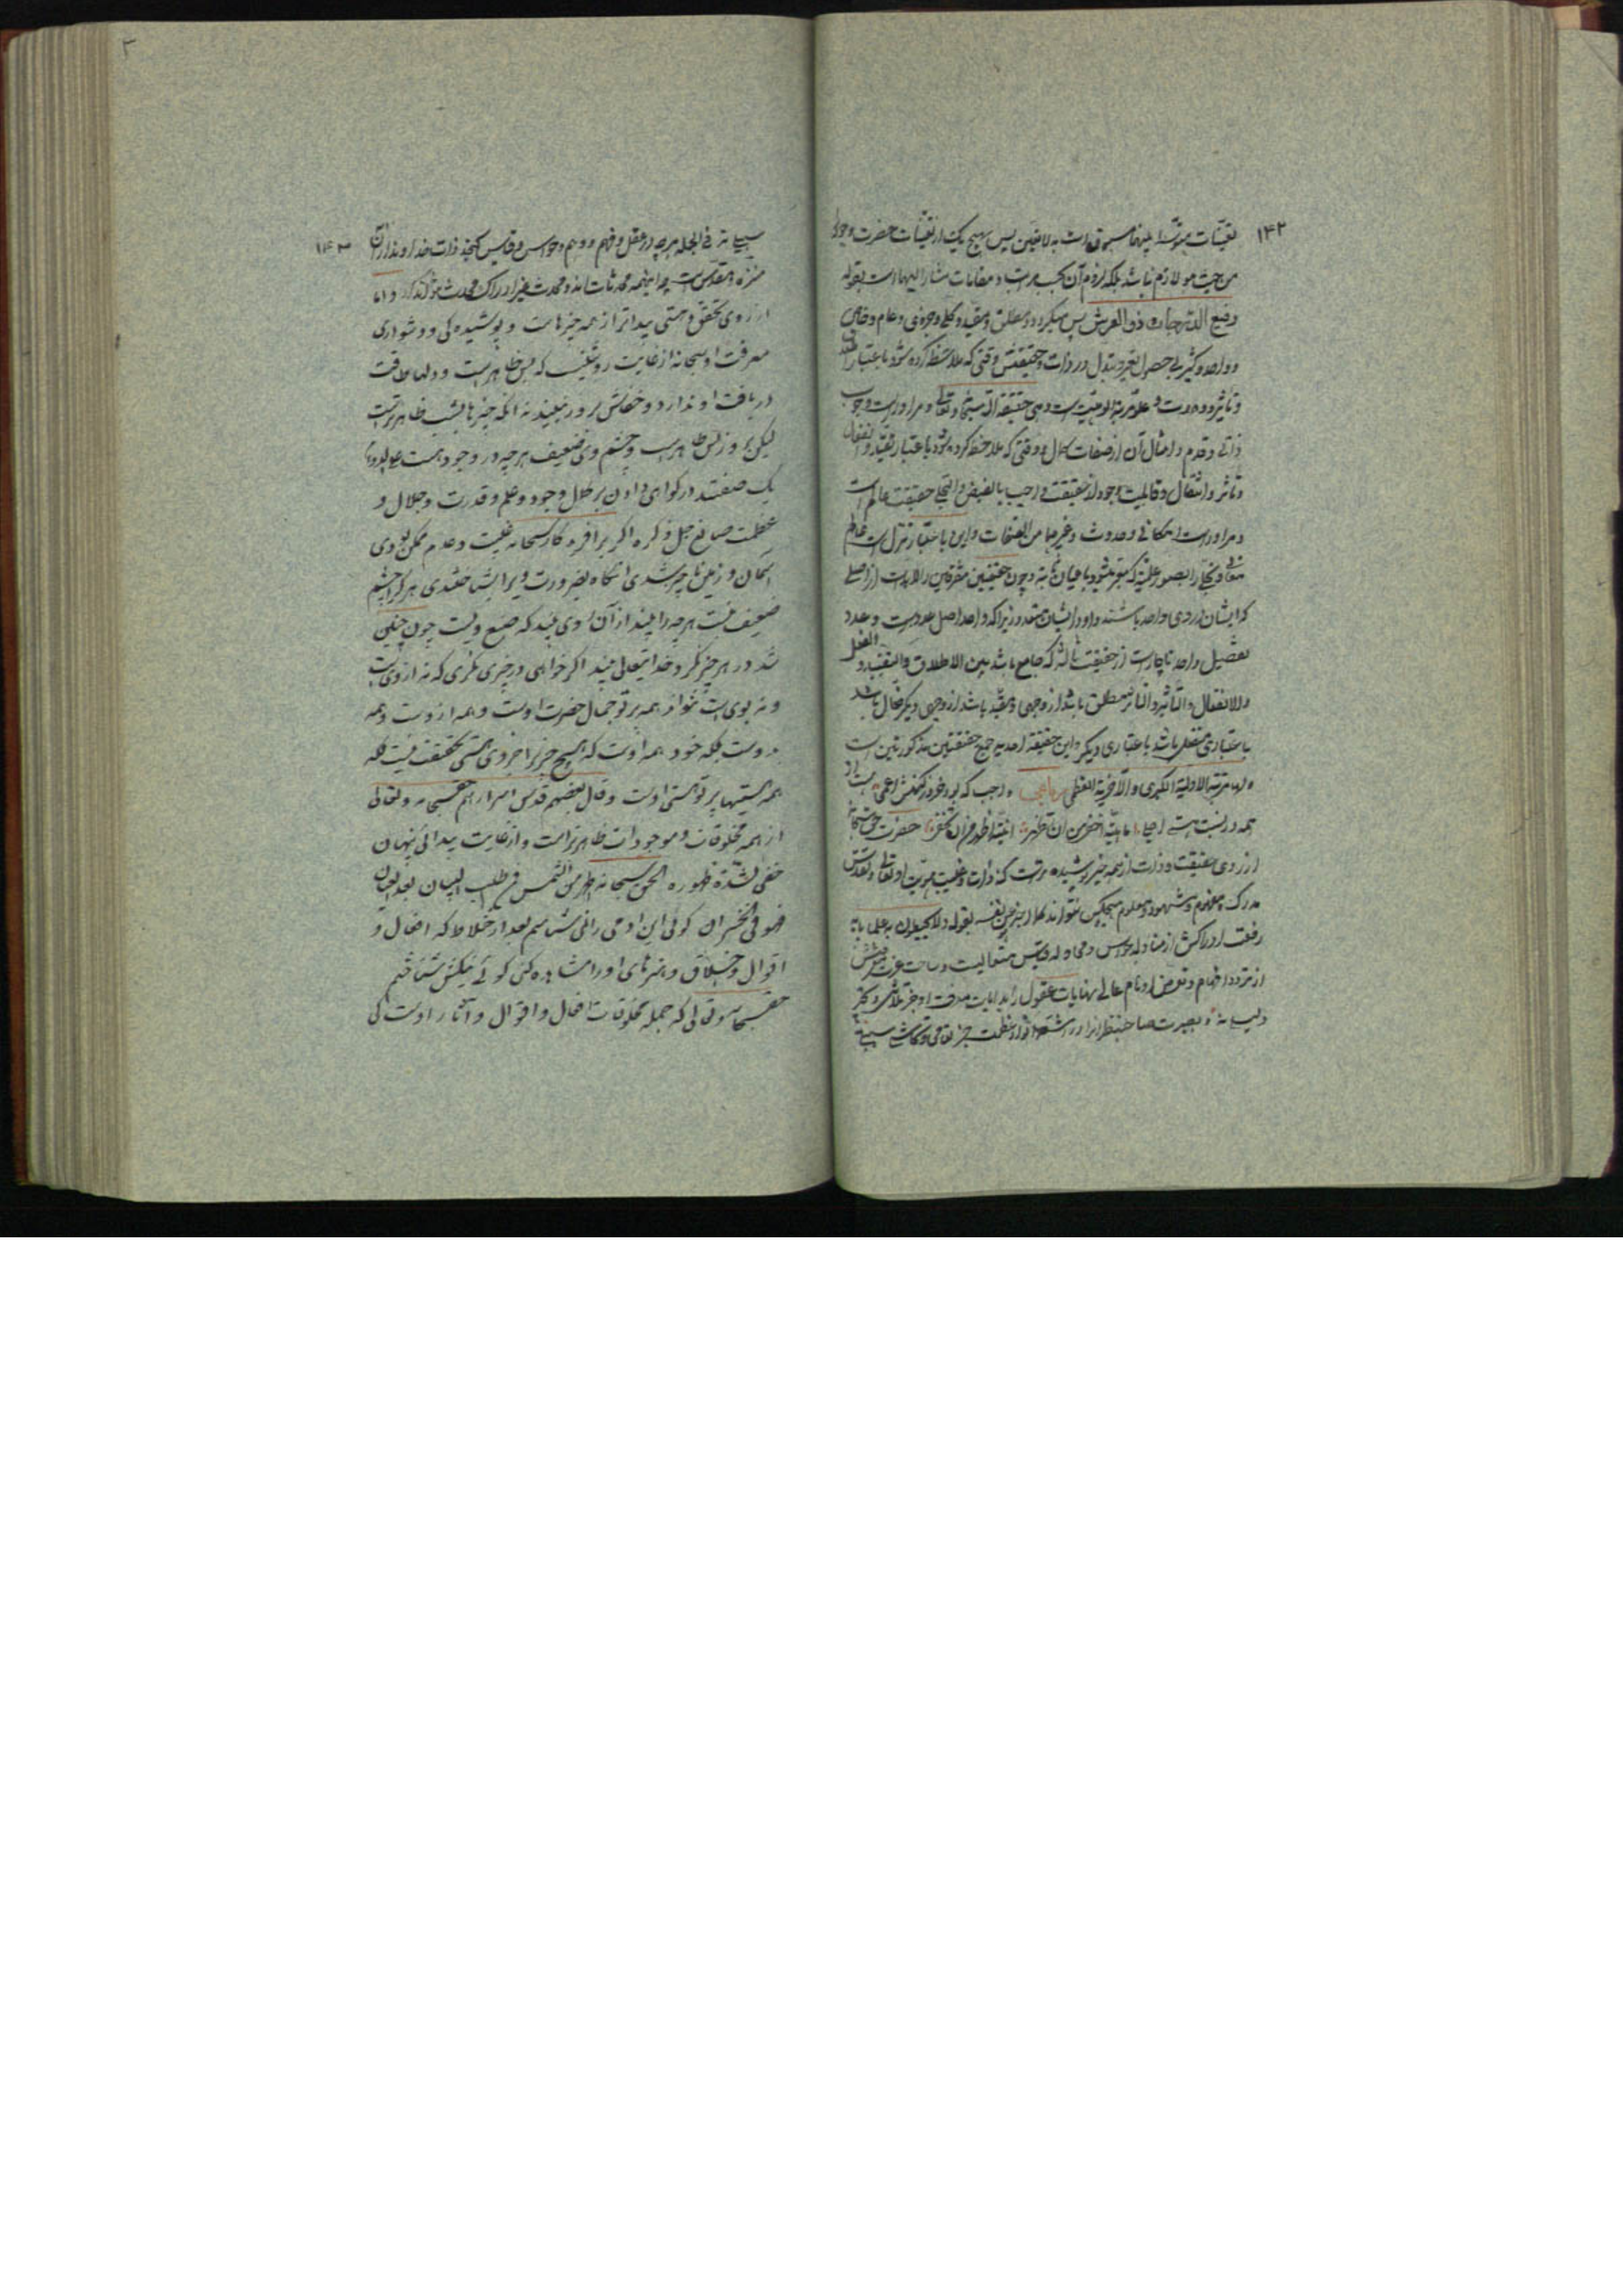 ۱۴۲
تعینات پس هیچ یک از تعینات حضرت وجود را
من حیث هو لازم نباشد بلکه لزوم آن بحسب مراتب و مقامات مشار الیها است بقوله
رفیع الدرجات ذو العرش پس میگردد مطلق و مقید و کلی و جزوی و عام و خاص
و واحد و کثیر بی حصول تغیر و تبدل در ذات و حقیقتش وقتی که ملاحظه کرده شود باعتبار
و تأثیر و وحدت و علو مرتبه الوهیت است و هی حقیقة الله سبحانه و تعالی و مر او راست وجوب
ذاتی و قدم و امثال آن از صفات کمال و وقتی که ملاحظه کرده شود باعتبار تقید و انفعال
و تأثر و قابلیت وجود از حقیقت واجب بالفیض و التجلی حقیقت عالم است
و مر او راست امکان ذاتی و حدوث و غیرها من الصفات و این باعتبار تنزل است بعالم
معانی و تجلی او بصور علمیه که تعبیر میشود باعیان ثابته و چون حقیقتین متفرقتین را لابدست از اصلی
که ایشان در وی واحد باشند و او در ایشان متعدد زیرا که واحد اصل عددست و عدد
تفصیل واحد ناچارست از حقیقت ثالثه که جامع باشد بین الاطلاق و التقیید و الفعل
و الانفعال و التأثیر و التأثر مطلق باشد از وجهی و مقید باشد از وجهی دیگر فعال باشد
باعتباری منفعل باشد باعتباری دیگر و این حقیقة احدیه جمع حقیقتین مذکورتین است
و لها مرتبة الاولیة الکبری و الآخریة العظمی رباعی واجب که بود خرد ز کنهش اعمی هست او
همه در نسبت هستی اجلی ماهیته اخفی من ان تظهر انیته اظهر من ان تخفی حضرت حق سبحانه
از روی حقیقت و ذات از همه چیز پوشیده ترست کنه ذات و غیب هویت او تعالی و تقدس
مدرک و مفهوم و مشهود و معلوم هیچکس نتواند کما اخبر هو عن نفسه بقوله و لا یحیطون به علما پایه
رفعت ادراکش از مناوله حواس و محاوله قیاس متعالیست و ساحت عزت معرفتش
از تردد افهام و تعرض اوهام خالی نهایات عقول را در بدایات معرفت او جز تحیر
و بصیرت صاحبنظران را در اشعه انوار عظمت جز تعامی و تعاشی سبیل نه
۱۴۳
سبیلی نه فی الجمله هر چه در عقل و فهم و وهم و حواس و قیاس گنجد ذات خداوند از آن
منزه و مقدس است چه اینهمه محدثات اند و محدث جز ادراک محدث نتواند کرد و اما
از روی تحقق و هستی پیداتر از همه چیزهاست و پوشیدگی و دشواری
معرفت او سبحانه از غایت روشنیست که بس ظاهرست و دلها طاقت
دریافت او ندارد و خفاش بروز نبیند نه آنکه چیزها بشب ظاهرترست
لیکن بروز بس ظاهرست و چشم وی ضعیف هر چه در وجود هست همه
یک صفتند در گواهی دادن بر کمال وجود و علم و قدرت و جلال و
عظمت صانع جل ذکره اگر بر آفریدگار سبحانه غیبت و عدم ممکن بودی
آسمان و زمین ناچیز شدی آنگاه بضرورت ویرا بشناختندی هر کرا چشم
ضعیف نیست هر چه را بیند از آن روی بیند که صنع ویست چون چنین
شد در هر چیز نگرد خدایتعالی بیند اگر خواهی در چیزی نگری که نه از ویست
و نه بویست نتوانی همه پرتو جمال حضرت اوست و همه ازوست و همه
بدوست بلکه خود همه اوست که هیچ چیز را جز وی هستی بحقیقت نیست بلکه
همه هستیها پرتو هستی اوست و قال بعضهم قدس اسرارهم حق سبحانه و تعالی
از همه مخلوقات و موجودات ظاهرترست و از غایت پیدائی پنهان
خفی لشدة ظهوره الحق سبحانه اظهر من الشمس فمن طلب البیان بعد العیان
فهو فی الخسران گوئی این آدمی را نمی شناسم بعد از اختلاط که افعال و
اقوال و اخلاق و هنرهای او را مشاهده کنی گوئی نیکش شناختم
حق سبحانه و تعالی که جمله مخلوقات افعال و اقوال و آثار اوست کی